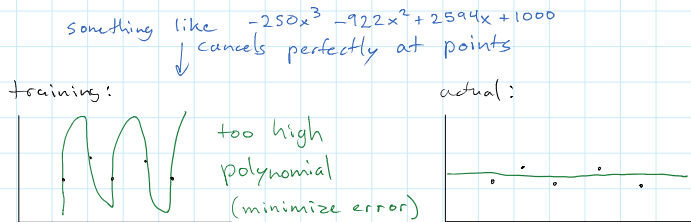 something like -250x³ -922x² + 2594x + 1000
cancels perfectly at points
training:
actual:
too high
polynomial
(minimize error)